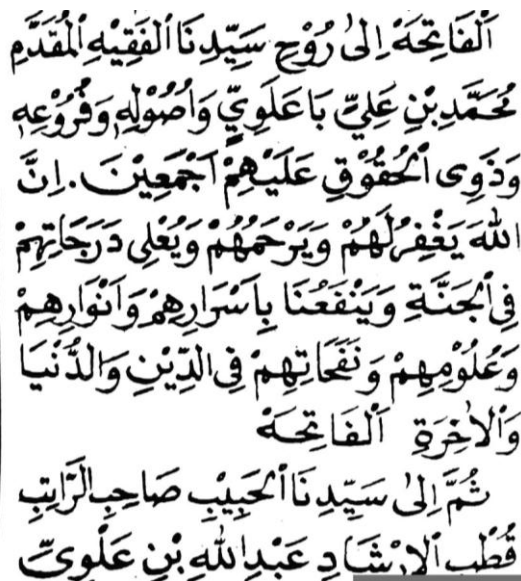 اَلْفَاتِحَةْ اِلىٰ رُوْحِ سَيِّدِنَا الْفَقِيْهِ الْمُقَدَّمِ
مُحَمَّدِ بْنِ عَلِيِّ بَاعَلَوِيِّ وَاُصُوْلِهٖ وَفُرُوْعِهٖ
وَذَوِى الْحُقُوْقِ عَلَيْهِمْ اَجْمَعِيْنَ . اِنَّ
اللهَ يَغْفِرُ لَهُمْ وَيَرْحَمُهُمْ وَيُعْلِى دَرَجَاتِهِمْ
فِى الْجَنَّةِ وَيَنْفَعُنَا بِاَسْرَارِهِمْ وَاَنْوَارِهِمْ
وَعُلُوْمِهِمْ وَنَفَحَاتِهِمْ فِى الدِّيْنِ وَالدُّنْيَا
وَالْاٰخِرَةِ اَلْفَاتِحَةْ
ثُمَّ اِلىٰ سَيِّدِنَا الْحَبِيْبِ صَاحِبِ الرَّاتِبِ
قُطْبِ الْاِرْشَادِ عَبْدِ اللهِ بْنِ عَلْوِيِّ